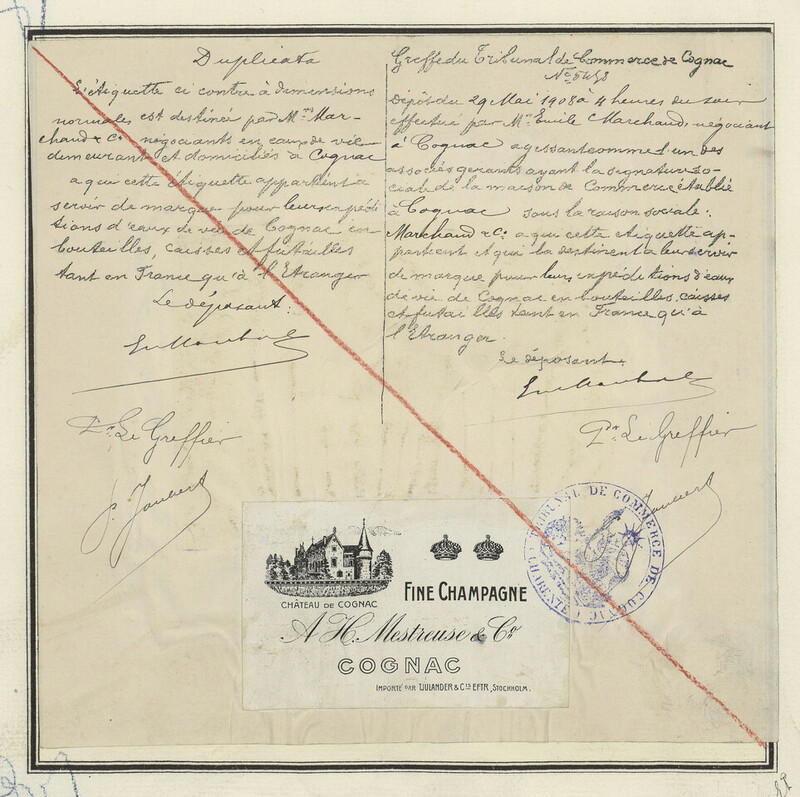 Duplicata
L'étiquette ci contre à dimensions
normales est destinée par Mrs Mar-
chaud & Co négociants en eaux de vie
demeurant et domiciliés à Cognac
a qui cette étiquette appartient a
servir de marque pour leurs expédi
tions d'eaux de vie de Cognac en
bouteilles, caisses et futailles
tant en France qu'à l'Etranger
Le déposant:
Pr Le Greffier
P. Joubert
Greffe du Tribunal de Commerce de Cognac
No
Dépôt du 29 Mai 1908 à 4 heures du soir
effectué par Mr Emile Marchaud, négociant
à Cognac agissant comme l'un des
associés gerants ayant la signature so-
ciale de la maison de Commerce établie
à Cognac sous la raison sociale:
Marchaud & Co a qui cette etiquette ap-
partient et qui la destinent a leur servir
de marque pour leurs expéditions d'eaux
de vie de Cognac en bouteilles, caisses
et futailles tant en France qu'à
l'Etranger.
Le déposant.
Pr Le Greffier
Joubert
TRIBUNAL DE COMMERCE DE COGNAC
CHARENTE
CHÂTEAU DE COGNAC
FINE CHAMPAGNE
A H. Mestreuse & Co
COGNAC
IMPORTÉ PAR TJULANDER & CIS EFTR, STOCKHOLM.